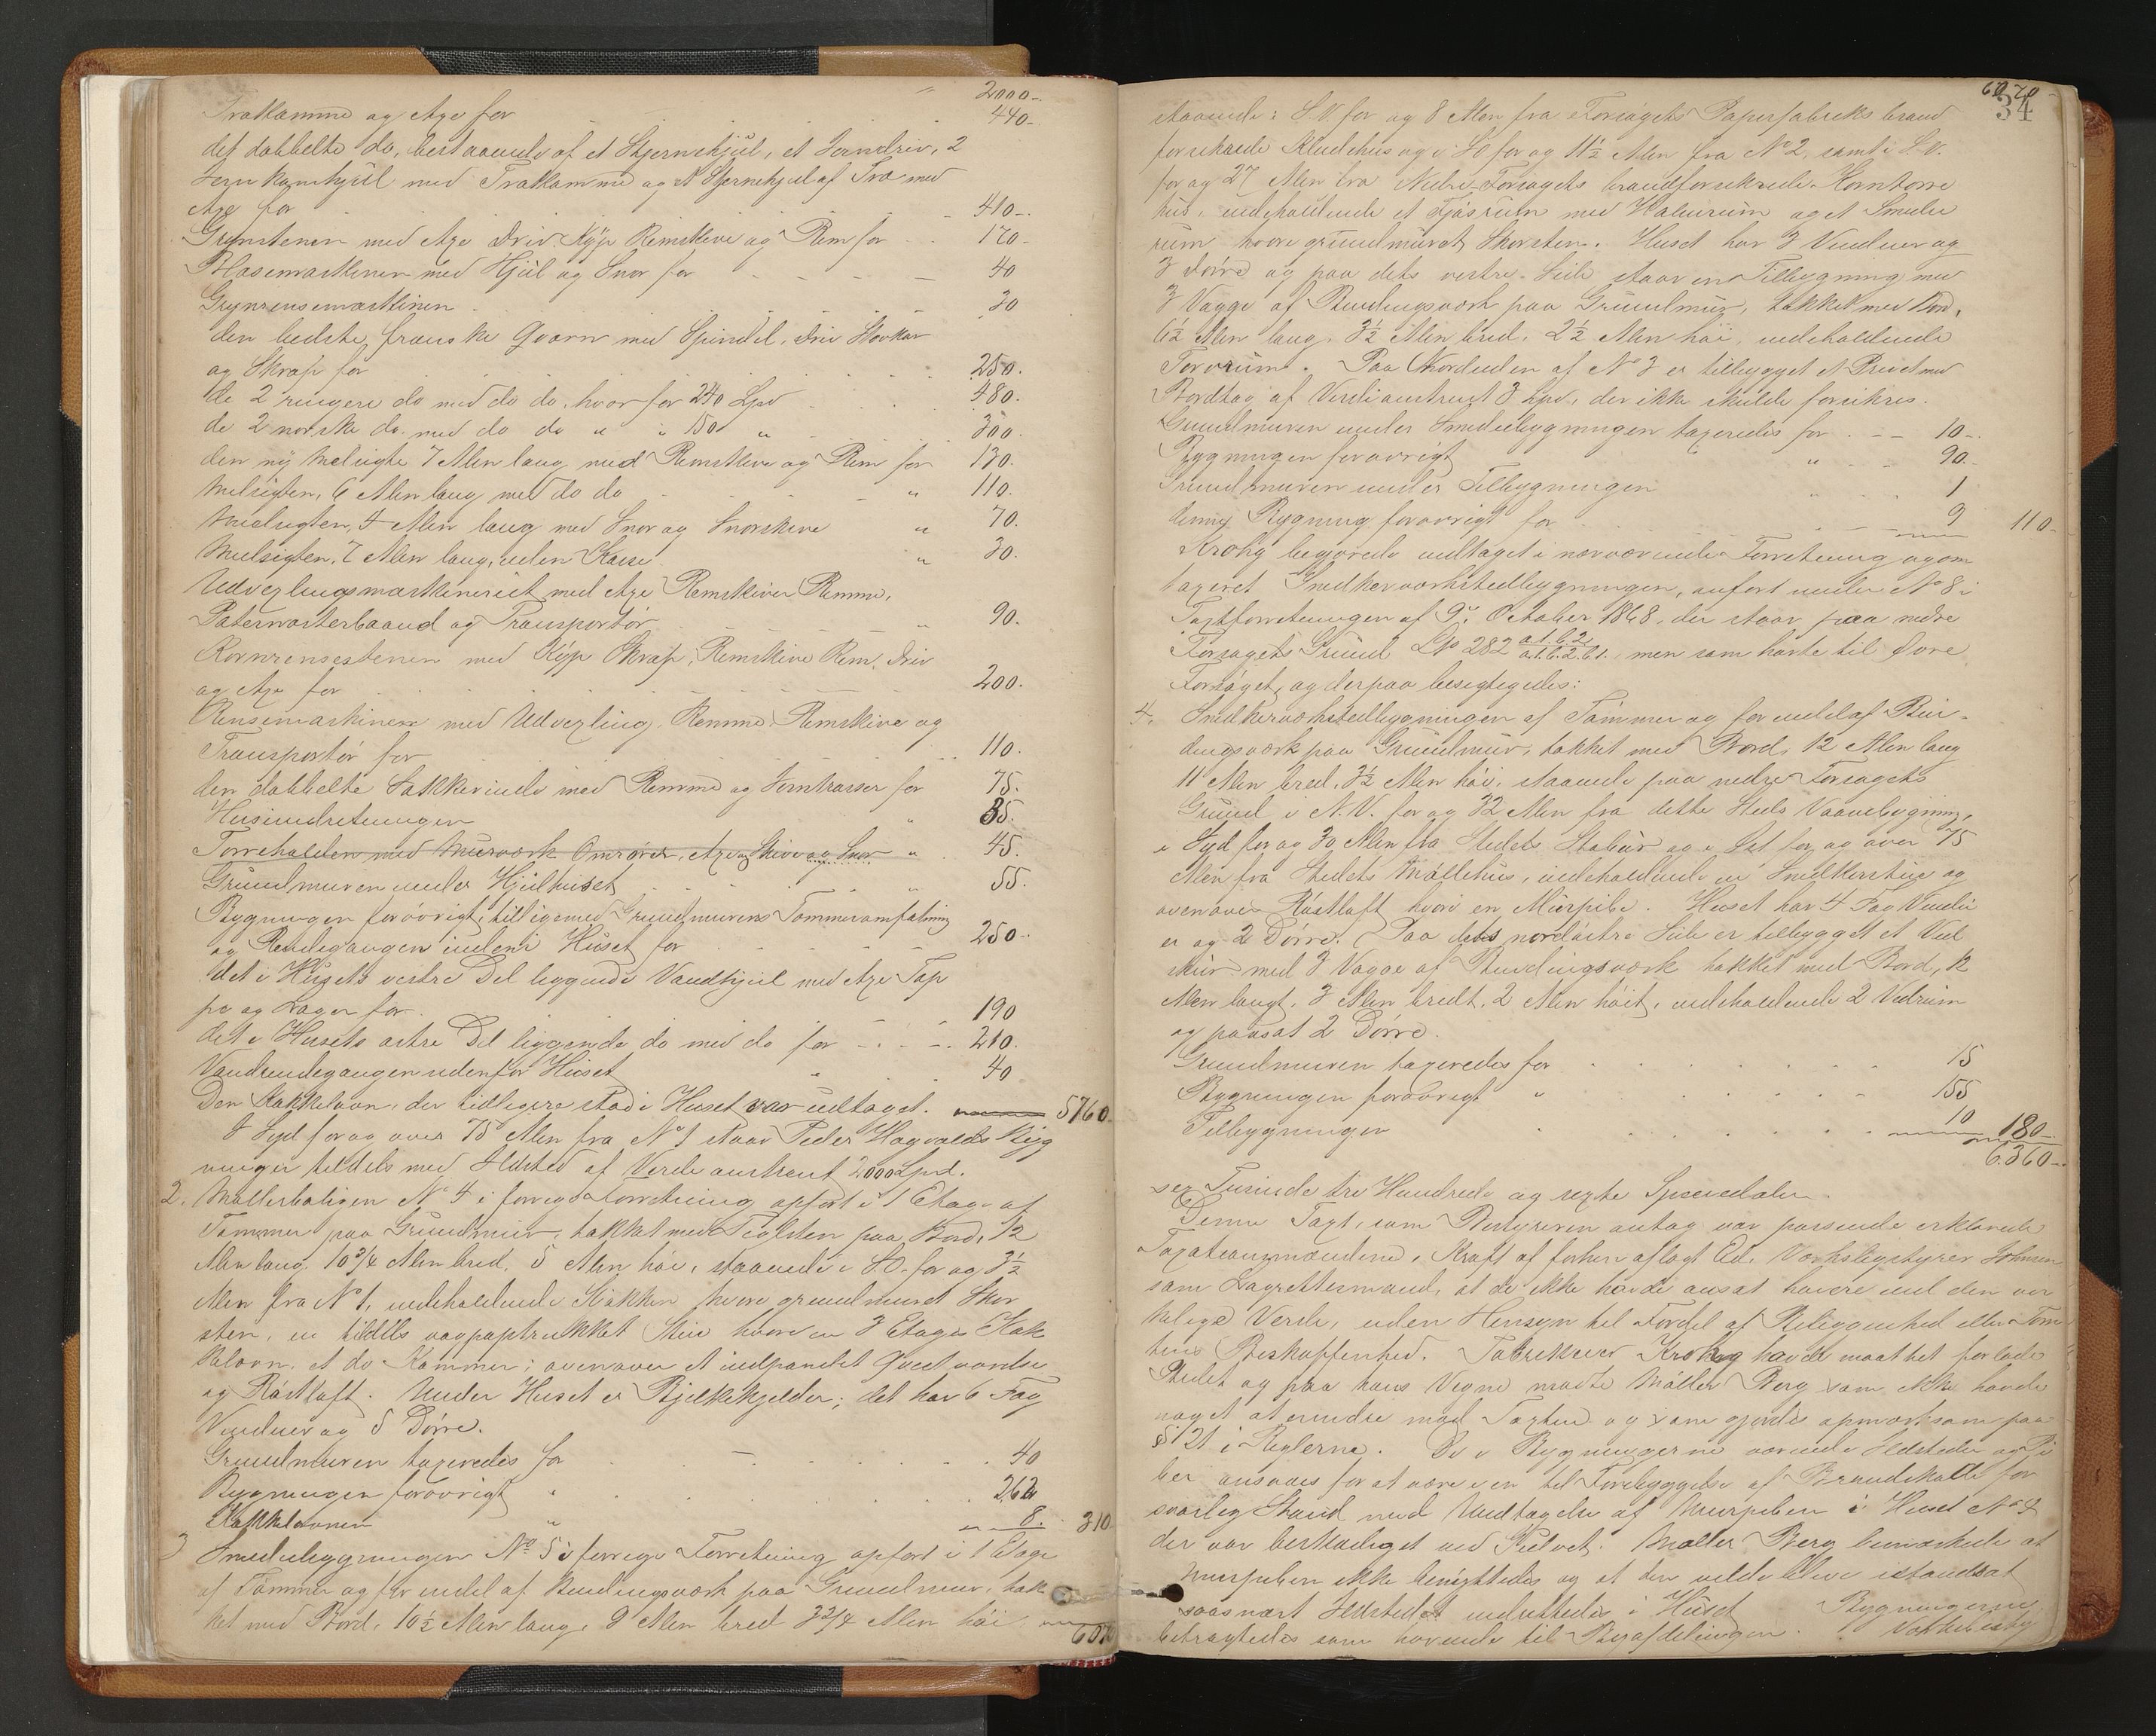 2000-
Trækamme og Axe for 440-
det dobbelte do, bestaaende af et Stjernehjul, et Jerndriv, 2
Jern Kamhjul med Trækamme og et Stjernehjul af Træ med
Axe for 410-
Grynstenen med Axe Driv, Kop Remskive og Rem for 170-
Blæsemaskinen med Hjul og Snor for 40
Grynrensemaskinen 30
den bedste franske Qværn med Spindel, Driv
og Skrap for 250.
de 2 ringere do med do do, hver for 240 Spd 480.
de 2 norske do. med do do " " 150 " 300.
den ny Melsigte 7 Alen lang med Remskive og Rem for 130.
Melsigten, 6 Alen lang med do do " 110.
Melsigten, 4 Alen lang med Snor og Snorskive " 70.
Melsigten, 7 Alen lang, uden Kasse " 30.
Udvexlingsmaskineriet med Axe Remskiver Remme,
Paternosterbaand og Transportør " 90.
Kornrensestenen med Kop Skrap, Remskive Rem, Driv
og Axe for 200.
Rensemaskinen med Udvexling, Remme, Remskive og
Transportør for 110.
den dobbelte Sækkevinde med Remme og Jerntrasser for 75.
Husindretningen " 35.
Tørrehelden med Murværk Omrører, Axe og Skive og Snor " 45.
Grundmuren under Hjulhuset " 55.
Bygningen forøvrigt, tilligemed Grundmurens Tømmeromfatning
og Rendegangen indeni Huset for 250-
det i Husets vestre Del liggende Vandhjul med Axe Tap
pe og Lager for 190
det i Husets østre Del liggende do med do for 210.
Vandrendegangen udenfor Huset " 40
Den Kakkelovn, der tidligere stod i Huset var udtaget. 5760.
I Syd for og over 75 Alen fra No 1 staar Peder Hagvalds Byg
ninger tildels med Ildsted af Værdi omtrent 2000 Spd.
2. Møllerboligen No 4 i forrige Forretning opført i 1 Etage af
Tømmer paa Grundmur, takket med Teglsten paa Bord, 12
Alen lang, 10 3/4 Alen bred, 5 Alen høi, staaende i SO. for og 3½
Alen fra No 1, indeholdende Kjøkken hvori grundmuret Skor
sten, en tildels vægpaptrukket Stue hvori en 3 Etages Kak
kelovn, et do Kammer; ovenover et indpanelet Qvistværelse
og Røstloft. Under Huset er Bjelkekjelder; det har 6 Fag
Vinduer og 5 Dørre.
Grundmuren taxeredes for 40
Bygningen forøvrigt " 262
Kakkelovnen " 8. 310
3 Smedebygningen No 5 i forrige Forretning opført i 1 Etage
af Tømmer og for endel af Bindingsværk paa Grundmur, tak
ket med Bord, 10½ Alen lang, 9 Alen bred 3 3/4 Alen høi
6070
34
staaende i S.V. for og 8 Alen fra Forsøgets Papirfabriks brand
forsikrede Kludehus og i SO for og 11½ Alen fra No 2, samt i S.V.
for og 27 Alen fra Nedre Forsøgets brandforsikrede Korntørre
hus, indeholdende et Fjøsrum med Halmrum og et Smede
rum hvori grundmuret Skorsten. Huset har 3 Vinduer og
3 Dørre og paa dets vestre Side staar en Tilbygning med
3 Vægge af Bindingsværk paa Grundmur, takket med Bord,
6½ Alen lang, 3½ Alen bred, 2½ Alen høi, indeholdende
Torvrum. Paa Nordenden af No 3 er tilbygget et Privet med
Bordtag af Værdi omtrent 3 Spd, der ikke skulde forsikres.
Grundmuren under Smedebygningen taxeredes for 10-
Bygningen forøvrigt " 90
Grundmuren under Tilbygningen " 1
denne Bygning forøvrigt for 9 110-
Krohg begjærede undtaget i nærværende Forretning og om
taxeret Snedkerværkstedbygningen, anført under No 8 i
Taxtforretningen af 9de October 1868, der staar paa nedre
Forsøgets Grund LNo 282 men som hørte til Øvre
Forsøget, og derpaa besigtigedes:
4. Snedkerværkstedbygningen af Tømmer og for endel af Bin-
dingsværk paa Grundmur, takket med Bord, 12 Alen lang
11 Alen bred, 3½ Alen høi, staaende paa nedre Forsøgets
Grund i N.V. for og 32 Alen fra dette Steds Vaanebygning,
i Syd for og 30 Alen fra Stedets Stabur og i Øst for og over 75
Alen fra Stedets Møllehus, indeholdende en Snedkerstue og
ovenover Røstloft hvori en Murpibe. Huset har 4 Fag Vindu
er og 2 Dørre. Paa dets nordøstre Side er tilbygget et Ved
skur med 3 Vægge af Bindingsværk takket med Bord, 12
Alen langt, 3 Alen bredt, 2 Alen høit, indeholdende 2 Vedrum
og paasat 2 Dørre.
Grundmuren taxeredes for 15
Bygningen forøvrigt " 155
Tilbygningen 10 180-
6.360-
sex Tusinde tre Hundrede og sexti Speciedaler.
Denne Taxt, som Bestyreren antog var passende erklærede
Taxationsmændene, i Kraft af forhen aflagt Ed, Værksbestyrer Johnsen
som Lagrettesmand, at de ikke havde ansat høiere end den vir
kelige Værdi, uden Hensyn til Fordel af Beliggenhed eller Tom
tens Beskaffenhed. Fabrikeier Krohg havde maattet forlade
Stedet og paa hans Vegne mødte Møller Berg som ikke havde
noget at erindre mod Taxten og som gjordes opmærksom paa
§ 21 i Reglerne. De i Bygningerne værende Ildsteder og Pi
ber ansaaes for at være i en til Forebyggelse af Brandskade for
svarlig Stand med Undtagelse af Murpiben i Huset No 4
der var beskadiget ved Gulvet. Møller Berg bemærkede at
Murpiben ikke benyttedes og at den vilde blive istandsat
saasnart Ildstedet indsattedes i Huset Bygningerne
betragtedes som hørende til Byafdelingen.